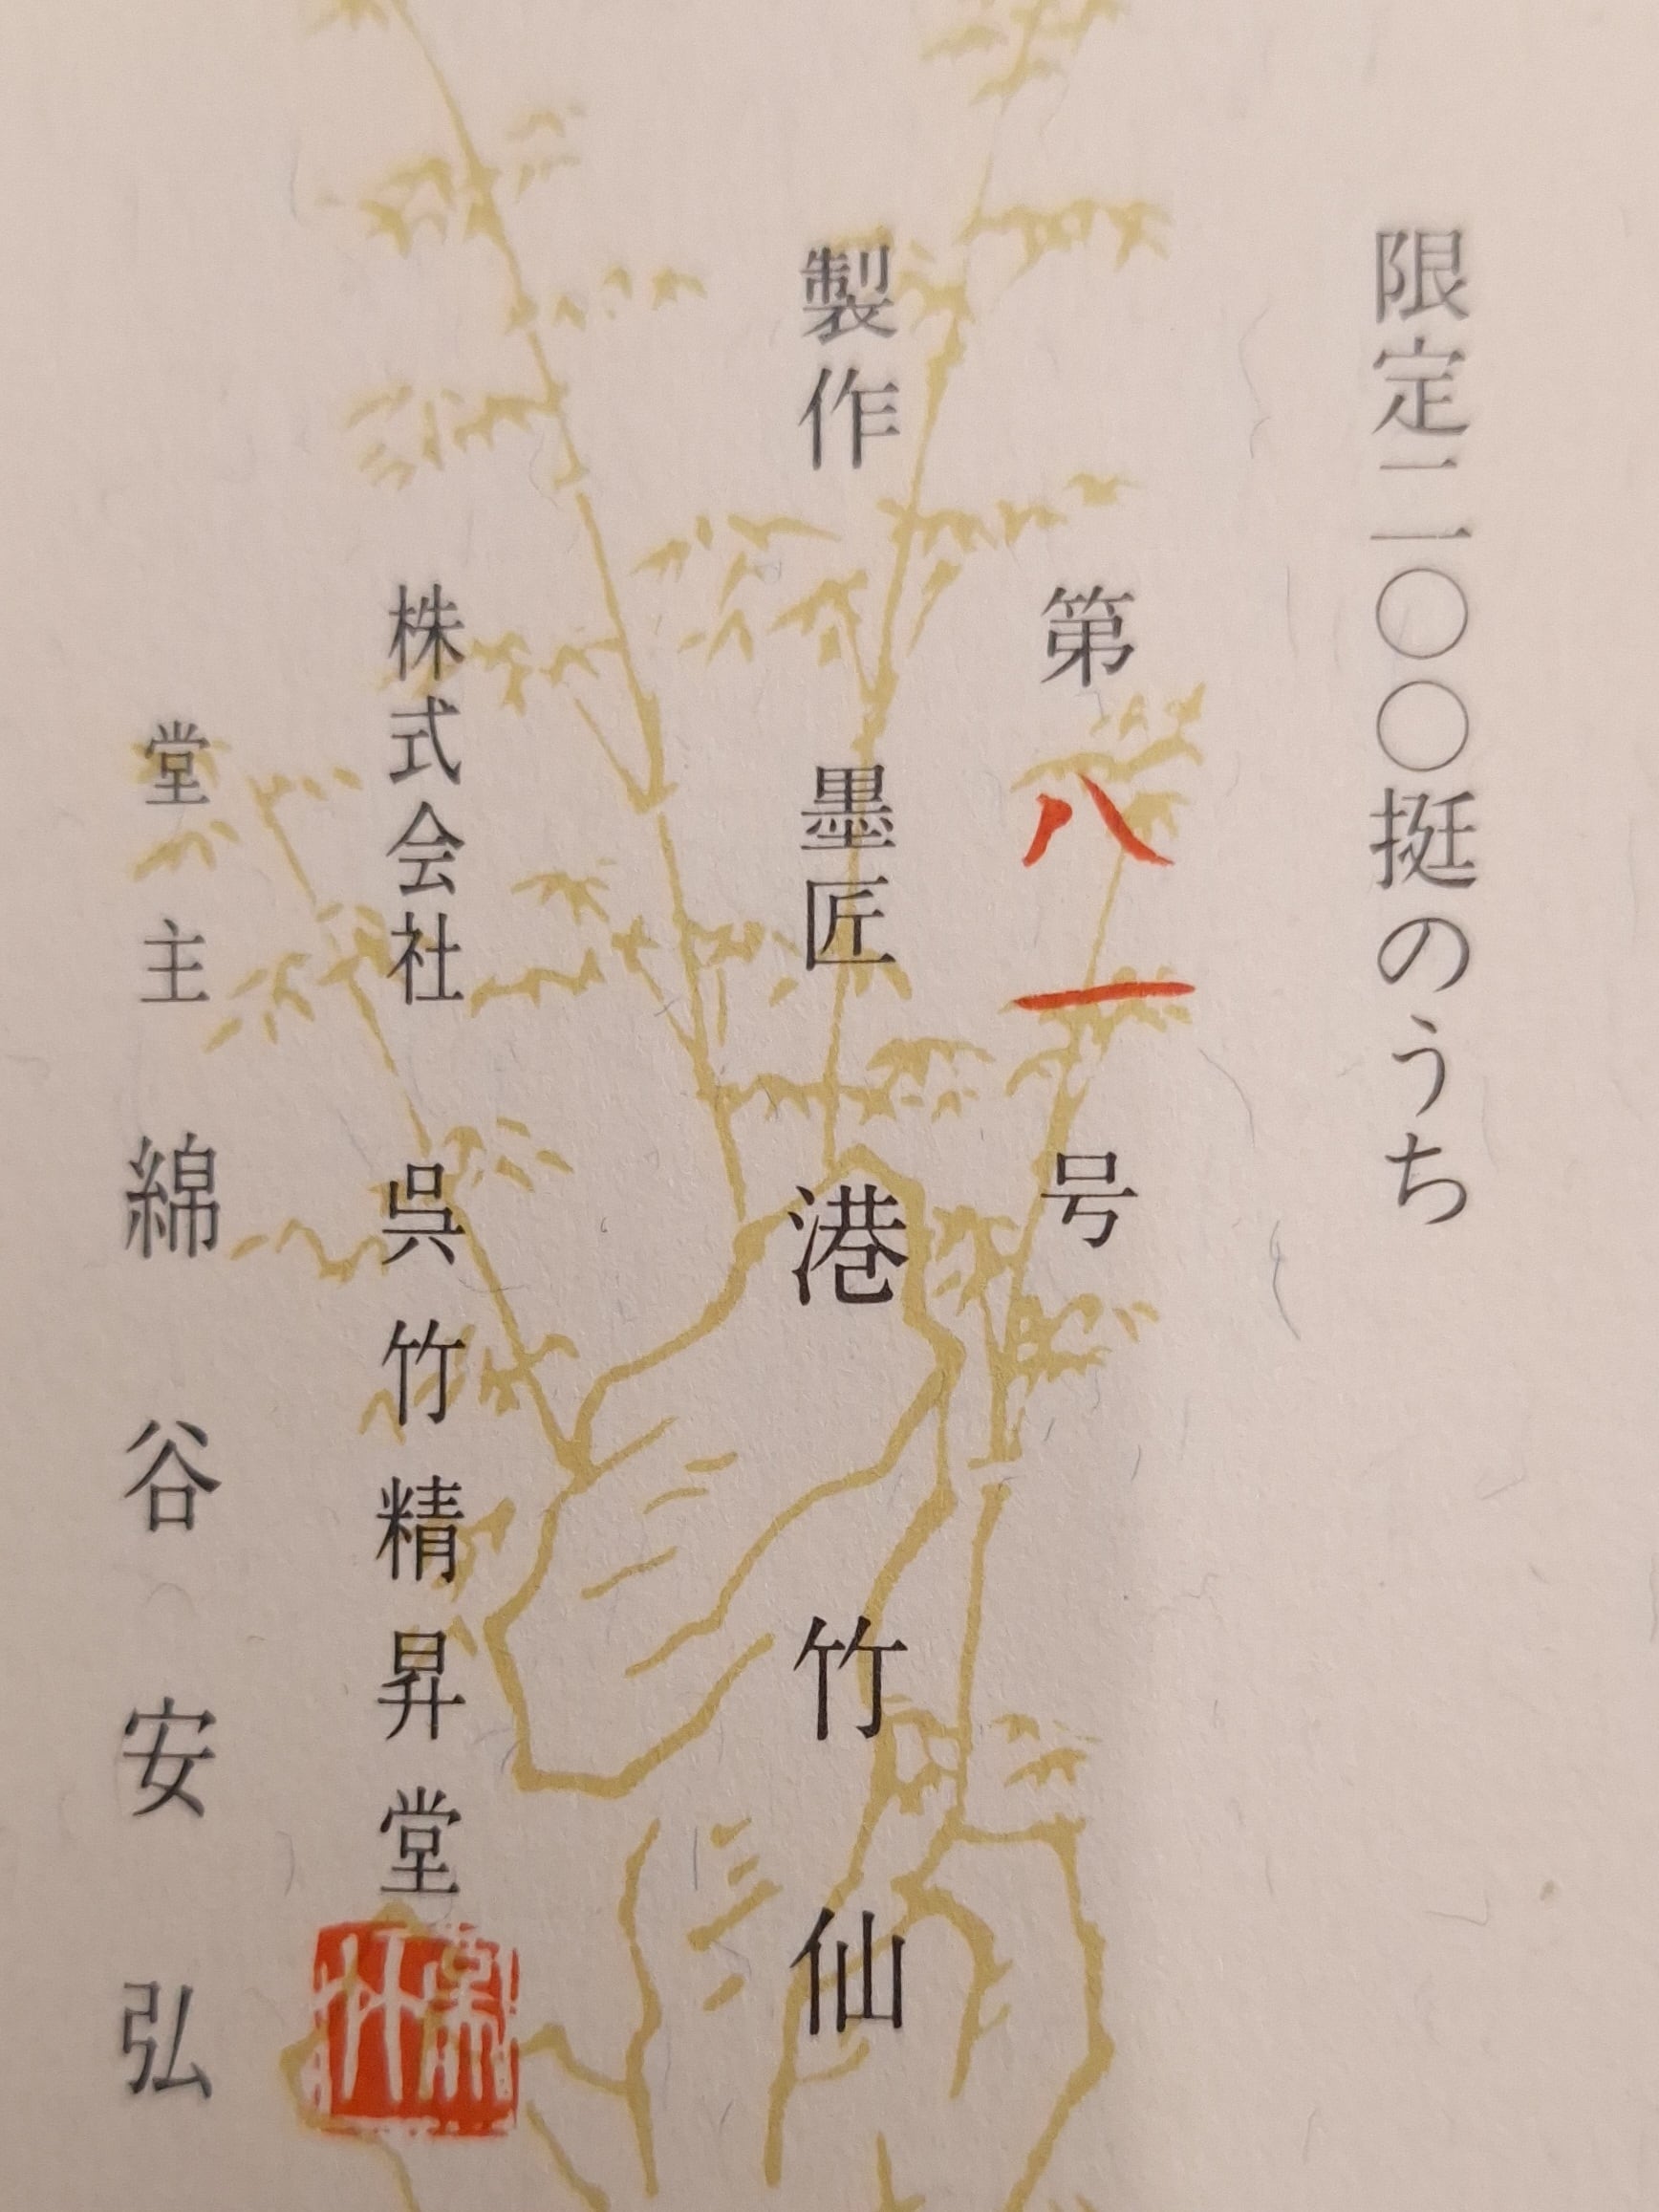 限定二〇〇挺のうち
第八一号
製作 墨匠 港竹仙
株式会社 呉竹精昇堂
堂主 綿谷安弘